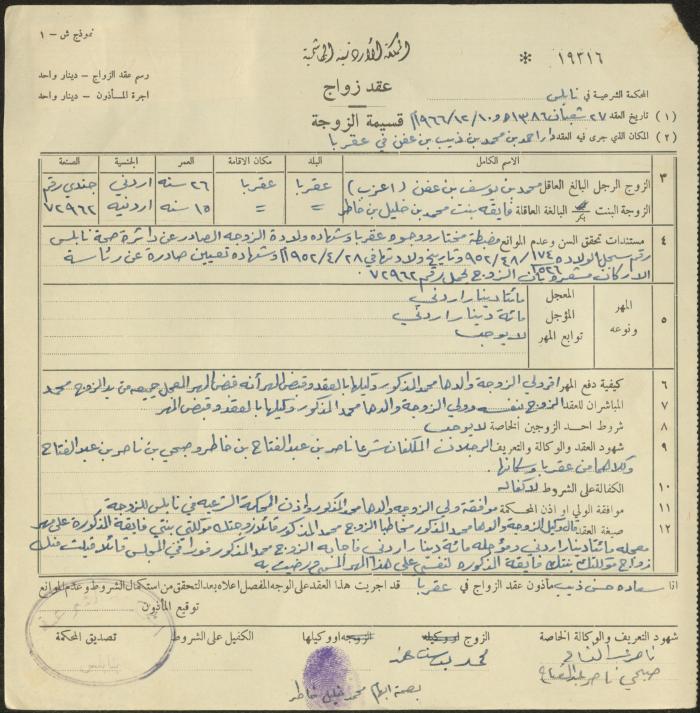 نموذج ش - ١
المملكة الأردنية الهاشمية
* ١٩٣١٦
رسم عقد الزواج - دينار واحد
اجرة المأذون - دينار واحد
عقد زواج
المحكمة الشرعية في نابلس
قسيمة الزوجة
(١) تاريخ العقد ٢٧ شعبان ١٣٨٦ و ١٠/١٢/١٩٦٦
(٢) المكان الذي جرى فيه العقد دار احمد بن محمد بن ذيب بن غفن في عقربا
الاسم الكامل البلد مكان الاقامة العمر الجنسية الصنعة
٣ الزوج الرجل البالغ العاقل محمد بن يوسف بن غفن (اعزب) عقربا عقربا ٢٦ سنه اردني جندي رقم
الزوجة البنت بكر البالغة العاقلة فايقه بنت محمد بن خليل بن خاطر = = ١٥ سنه اردنيه ٧٢٩٦٢
٤ مستندات تحقق السن وعدم الموانع مضبطة مختار ووجوه عقربا وشهاده ولادة الزوجه الصادر عن دائرة صحة نابلس
رقم سجل الولاده ١٧٤/٤٨/٩٥٢ وتاريخ ولادتها في ٢٨/٤/٩٥٢ وشهاده تعيين صادرة عن رئاسة
الاركان مشعرة بأن الزوج يحمل رقم ٧٢٩٦٢
٥ المهر ونوعه
المعجل مائتا دينار اردني
المؤجل مائة دينار اردني
توابع المهر لا يوجد
٦ كيفية دفع المهر اقر ولي الزوجة والدها محمد المذكور وكيلها بالعقد وقبض المهر أنه قبض المهر المعجل جميعه من يد الزوج محمد
٧ المباشران للعقد الزوج بنفسه وولي الزوجة والدها محمد المذكور وكيلها بالعقد وقبض المهر
٨ شروط احد الزوجين الخاصة لا يوجد
٩ شهود العقد والوكالة والتعريف الرجلان المكلفان شرعا ناصر بن عبد الفتاح بن خاطر وصبحي بن ناصر بن عبد الفتاح
وكلاهما من عقربا وسكانها.
١٠ الكفالة على الشروط لا كفاله
١١ موافقة الولي او اذن المحكمة موافقة ولي الزوجه والدها محمد المذكور واذن المحكمة الشرعيه في نابلس للزوجة
١٢ صيغة العقد قال وكيل الزوجة والدها محمد المذكور مخاطبا الزوج محمد المذكور قائلا زوجتك موكلتي بنتي فايقة المذكورة على مهر
معجله مائتا دينار اردني ومؤجله مائة دينار اردني فأجابه الزوج محمد المذكور فورا في المجلس قائلا قبلت منك
زواج موكلتك بنتك فايقة المذكوره لنفسي على هذا المهر المسمى ورضيت به
انا سعاده حسن ذيب مأذون عقد الزواج في عقربا قد اجريت هذا العقد على الوجه المفصل اعلاه بعد التحقق من استكمال الشروط وعدم الموانع
توقيع المأذون
شهود التعريف والوكالة الخاصة الزوج او وكيله الزوجه او وكيلها الكفيل على الشروط تصديق المحكمة
ناصر عبد الفتاح
صبحي ناصر عبد الفتاح
محمد يوسف
بصمة ابهام محمد خليل خاطر
نابلس